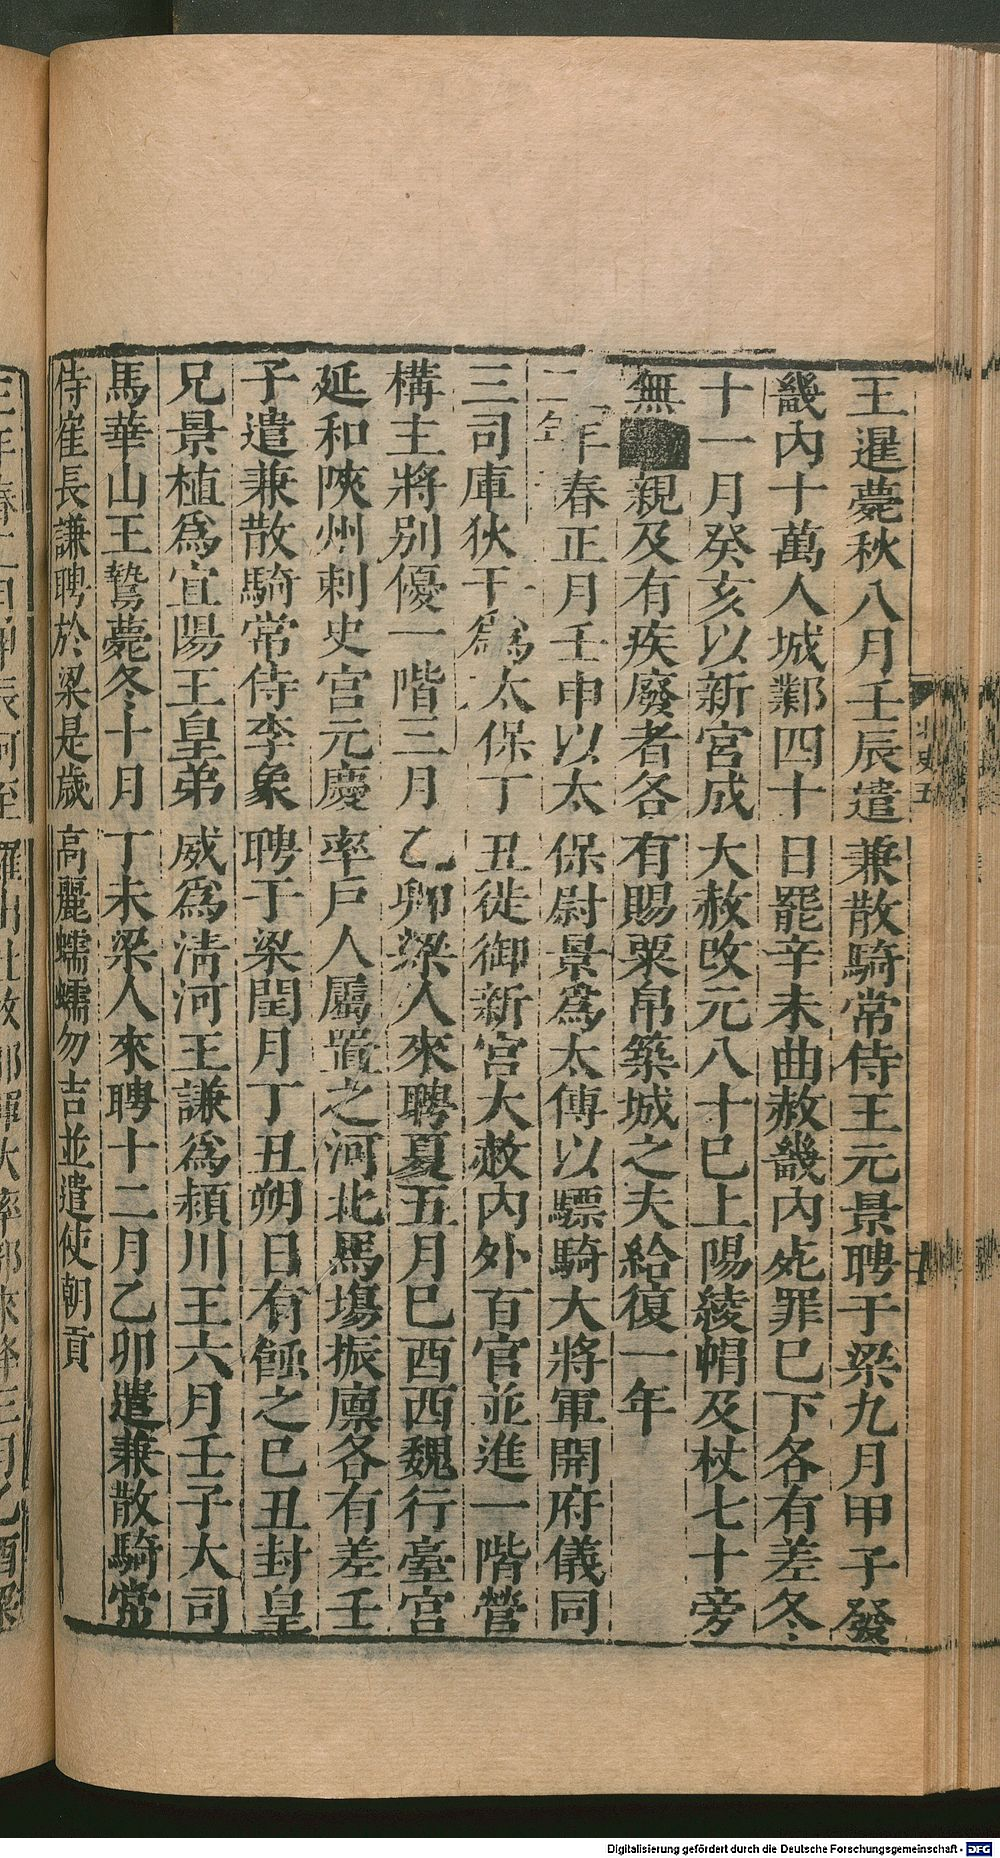 王暹薨秋八月壬辰遣兼散騎常侍王元景聘于梁九月甲子發
畿內十萬人城鄴四十日罷辛未曲赦畿內死罪已下各有差冬
十一月癸亥以新宮成大赦改元八十已上陽綾帽及杖七十旁
無親及有疾廢者各有賜粟帛築城之夫給復一年
二年春正月壬申以太保尉景爲太傅以驃騎大將軍開府儀同
三司庫狄干爲太保丁丑徙御新宮大赦內外百官並進一階營
構主將別優一階三月乙卯梁人來聘夏五月己酉西魏行臺宮
延和陜州刺史宮元慶率戶人屬置之河北馬塲振廩各有差壬
子遣兼散騎常侍李象聘于梁閏月丁丑朔日有蝕之已丑封皇
兄景植爲宜陽王皇弟威爲淸河王謙爲頴川王六月壬子大司
馬華山王鷙薨冬十月丁未梁人來聘十二月乙卯遣兼散騎常
侍崔長謙聘於梁是歲高麗蠕蠕勿吉並遣使朝貢
北史五
Digitalisierung gefördert durch die Deutsche Forschungsgemeinschaft - DFG